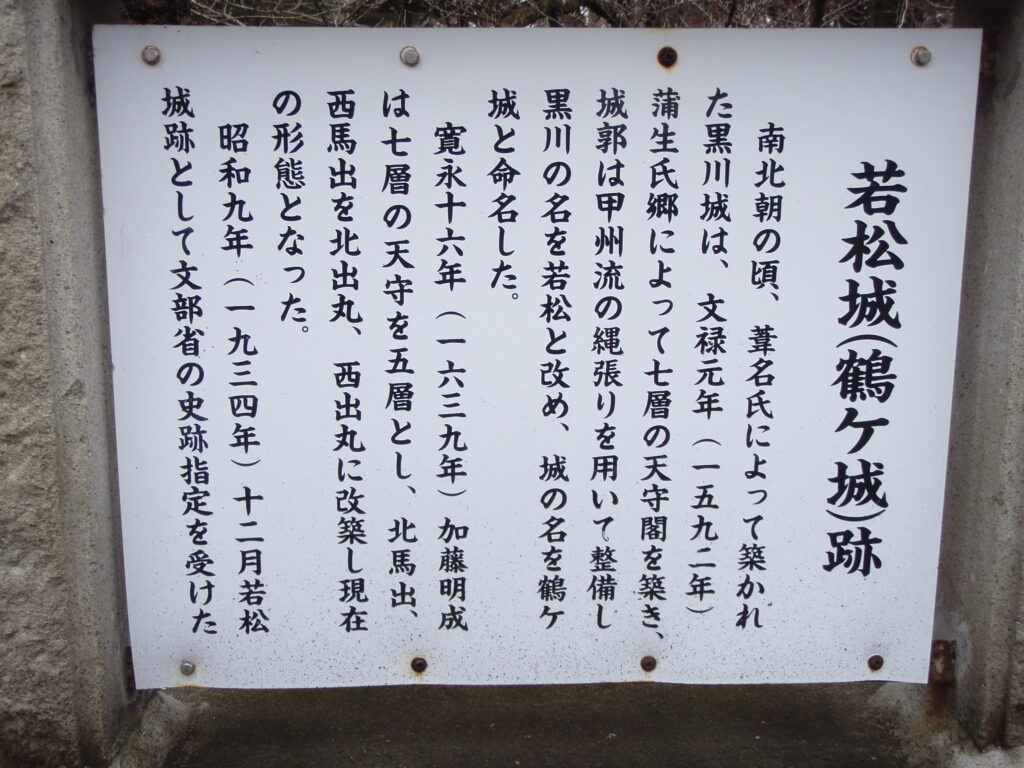 若松城(鶴ケ城)跡
南北朝の頃、葦名氏によって築かれ
た黒川城は、文禄元年(一五九二年)
蒲生氏郷によって七層の天守閣を築き、
城郭は甲州流の縄張りを用いて整備し
黒川の名を若松と改め、城の名を鶴ケ
城と命名した。
寛永十六年(一六三九年)加藤明成
は七層の天守を五層とし、北馬出、
西馬出を北出丸、西出丸に改築し現在
の形態となった。
昭和九年(一九三四年)十二月若松
城跡として文部省の史跡指定を受けた